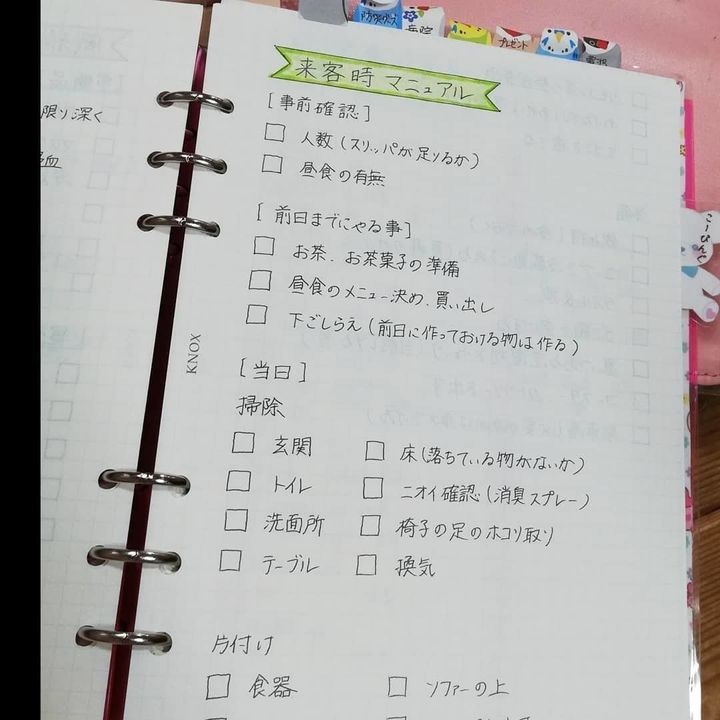 防災グッズ
病院
プレゼント
電源
限り深く
来客時マニュアル
[事前確認]
□ 人数(スリッパが足りるか)
□ 昼食の有無
[前日までにやる事]
□ お茶、お茶菓子の準備
□ 昼食のメニュー決め、買い出し
□ 下ごしらえ(前日に作っておける物は作る)
[当日]
掃除
□ 玄関 □ 床(落ちている物がないか)
□ トイレ □ ニオイ確認(消臭スプレー)
□ 洗面所 □ 椅子の足のホコリ取り
□ テーブル □ 換気
片付け
□ 食器 □ ソファーの上
KNOX
こーぴんぐ